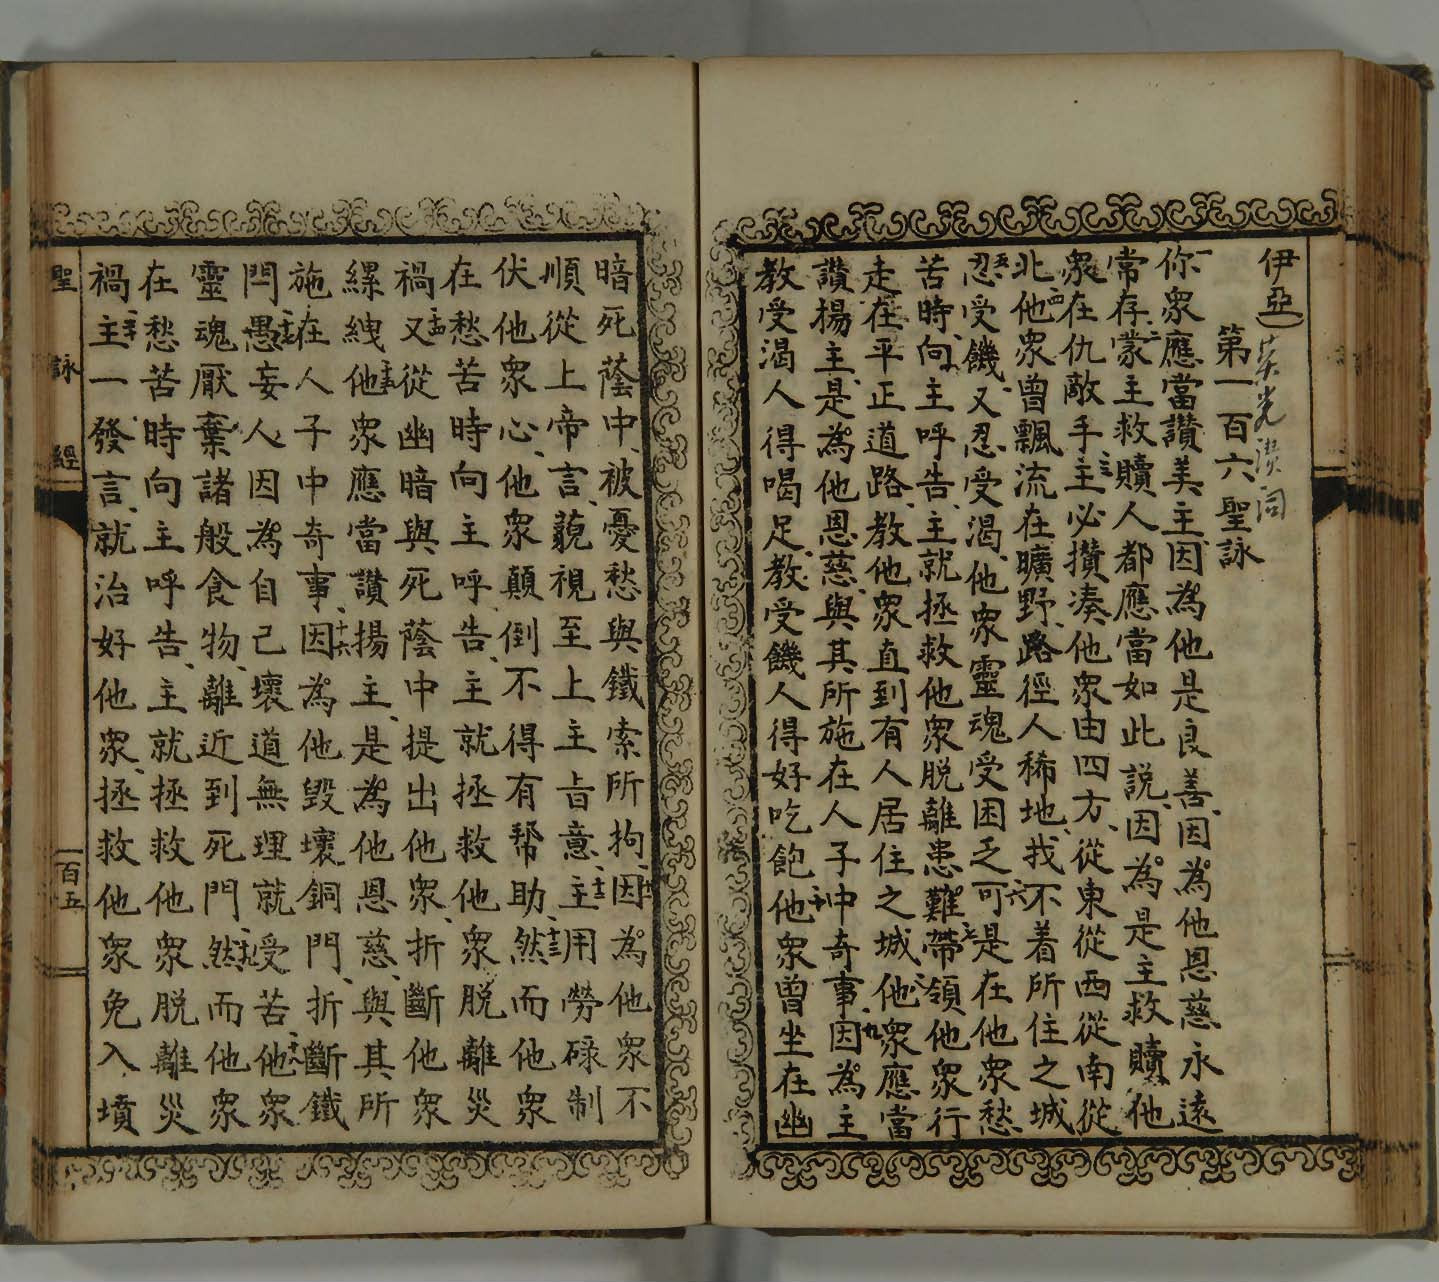 伊亞
第一百六聖詠
一你衆應當讚美主因為他是良善因為他恩慈永遠
常存二蒙主救贖人都應當如此說因為是主救贖他
衆在仇敵手三主必攢湊他衆由四方從東從西從南從
北四他衆曾飄流在曠野路徑人稀地找不着所住之城
五忍受饑又忍受渴他衆靈魂受困乏六可是在他衆愁
苦時向主呼告主就拯救他衆脫離患難七帶領他衆行
走在平正道路教他衆直到有人居住之城八他衆應當
讚揚主是為他恩慈與其所施在人子中奇事九因為主
教受渴人得喝足教受饑人得好吃飽十他衆曾坐在幽
暗死蔭中被憂愁與鐵索所拘十一因為他衆不
順從上帝言藐視至上主旨意十二主用勞碌制
伏他衆心他衆顛倒不得有幫助十三然而他衆
在愁苦時向主呼告主就拯救他衆脫離災
禍十四又從幽暗與死蔭中提出他衆折斷他衆
縲絏十五他衆應當讚揚主是為他恩慈與其所
施在人子中奇事十六因為他毀壞銅門折斷鐵
閂十七愚妄人因為自己壞道無理就受苦十八他衆
靈魂厭棄諸般食物離近到死門十九然而他衆
在愁苦時向主呼告主就拯救他衆脫離災
禍二十主一發言就治好他衆拯救他衆免入墳
聖詠經
一百五